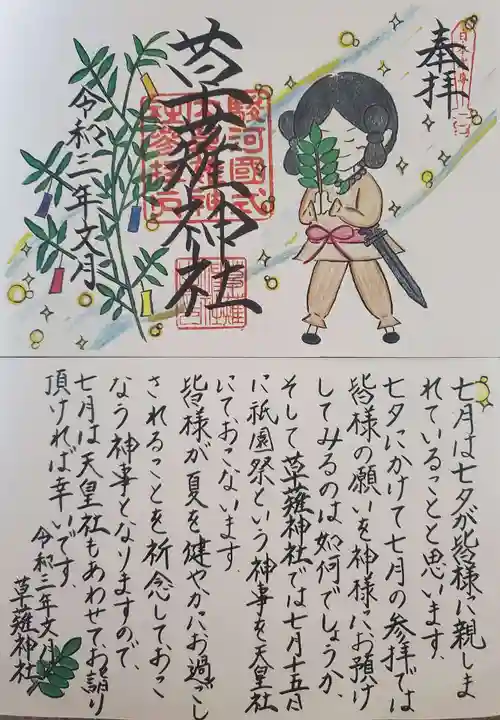 奉拝
草薙神社
令和三年文月
七月は七夕が皆様に親しま
れていることと思います。
七夕にかけて七月の参拝では
皆様の願いを神様にお預け
してみるのは如何でしょうか、
そして草薙神社では七月十五日
に祇園祭という神事を天皇社
にておこないます。
皆様が夏を健やかにお過ごし
されることを祈念しておこ
なう神事となりますので、
七月は天皇社もあわせてお詣り
頂ければ幸いです。
令和三年文月
草薙神社